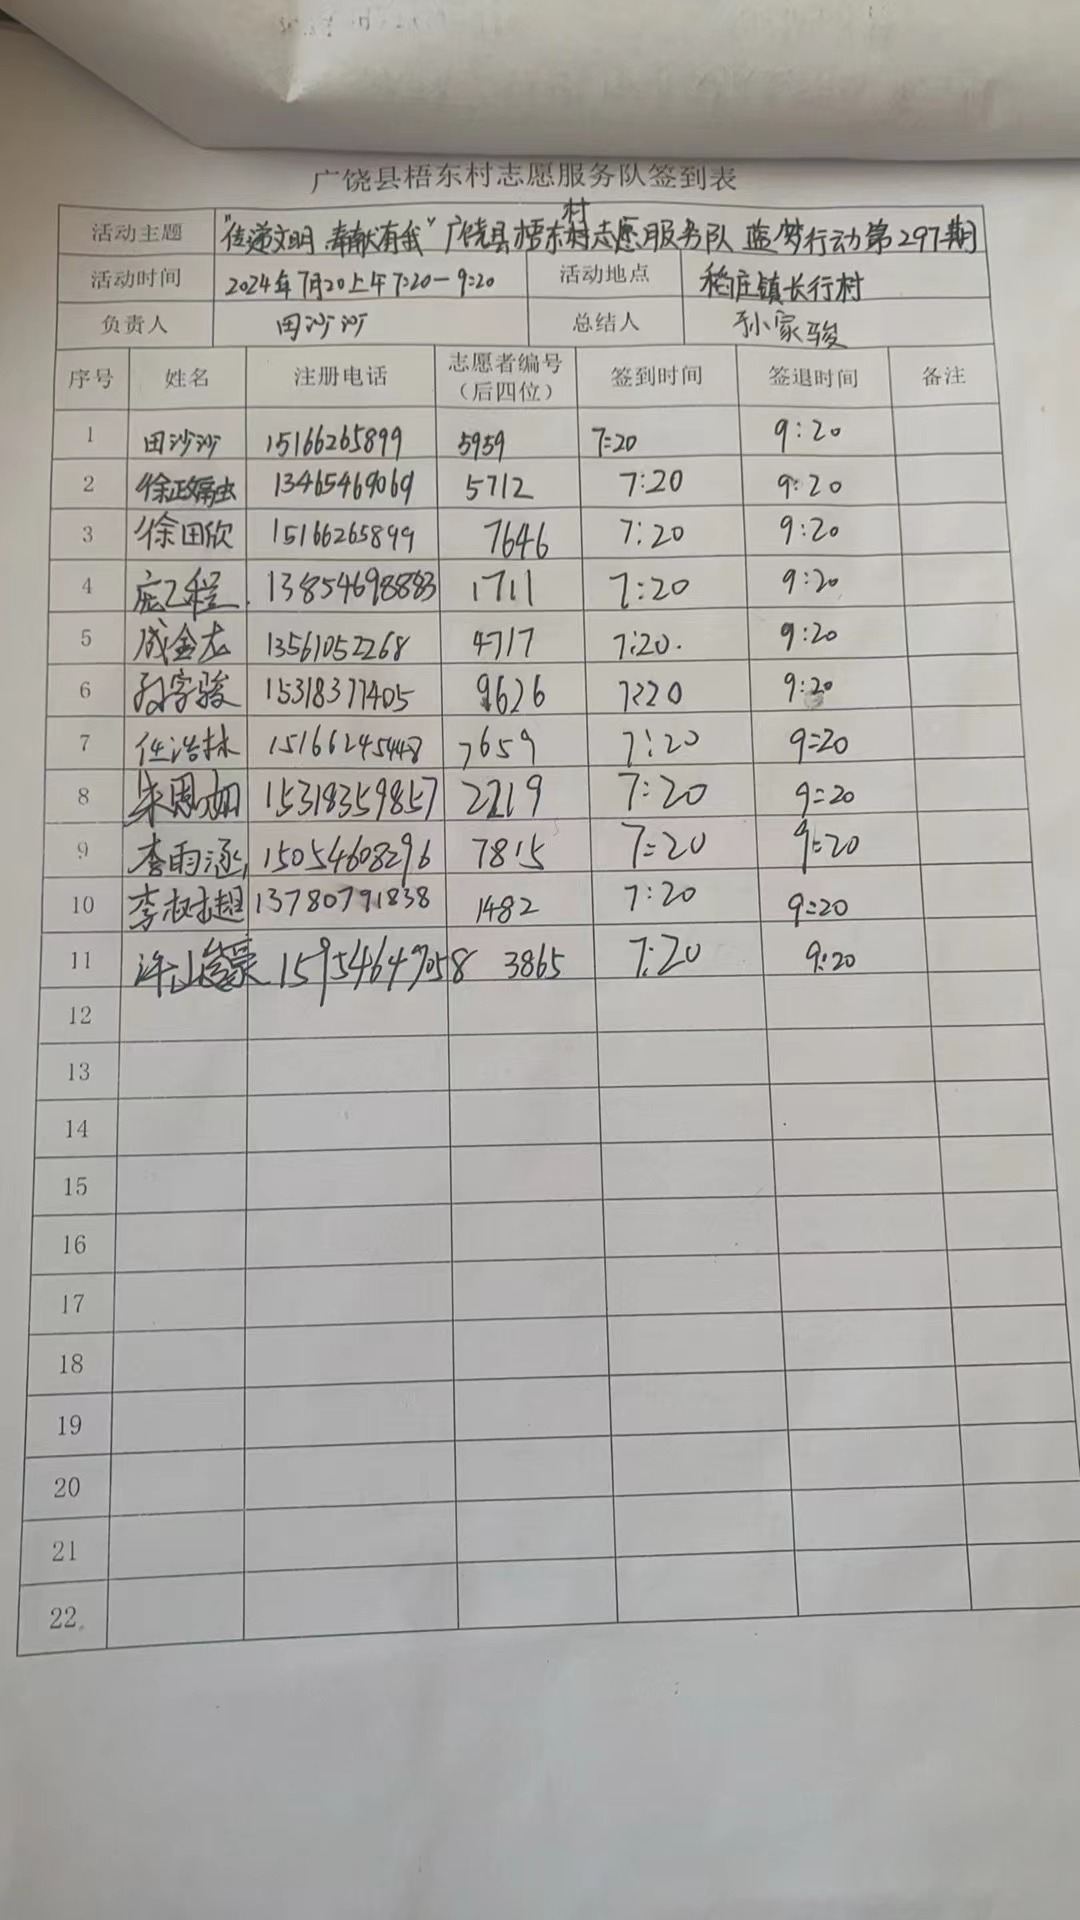 广饶县梧东村志愿服务队签到表
活动主题 "传递文明,奉献有我"广饶县梧东村志愿服务队 蓝梦行动第297期
活动时间 2024年7月20上午7:20-9:20 活动地点 稻庄镇长行村
负责人 田沙沙 总结人 孙家骏
序号 姓名 注册电话 志愿者编号(后四位) 签到时间 签退时间 备注
1 田沙沙 15166265899 5959 7:20 9:20
2 徐政 13465469069 5712 7:20 9:20
3 徐田欣 15166265899 7646 7:20 9:20
4 庞乙程 13854698883 1711 7:20 9:20
5 成金龙 13561052268 4717 7:20. 9:20
6 孙家骏 15318377405 9626 7:20 9:20
7 任浩林 15166245448 7659 7:20 9:20
8 朱恩如 15318359857 2219 7:20 9:20
9 李雨涵 15054608296 7815 7:20 9:20
10 李 超 13780791838 1482 7:20 9:20
11 许 豪 15954649058 3865 7:20 9:20
12
13
14
15
16
17
18
19
20
21
22